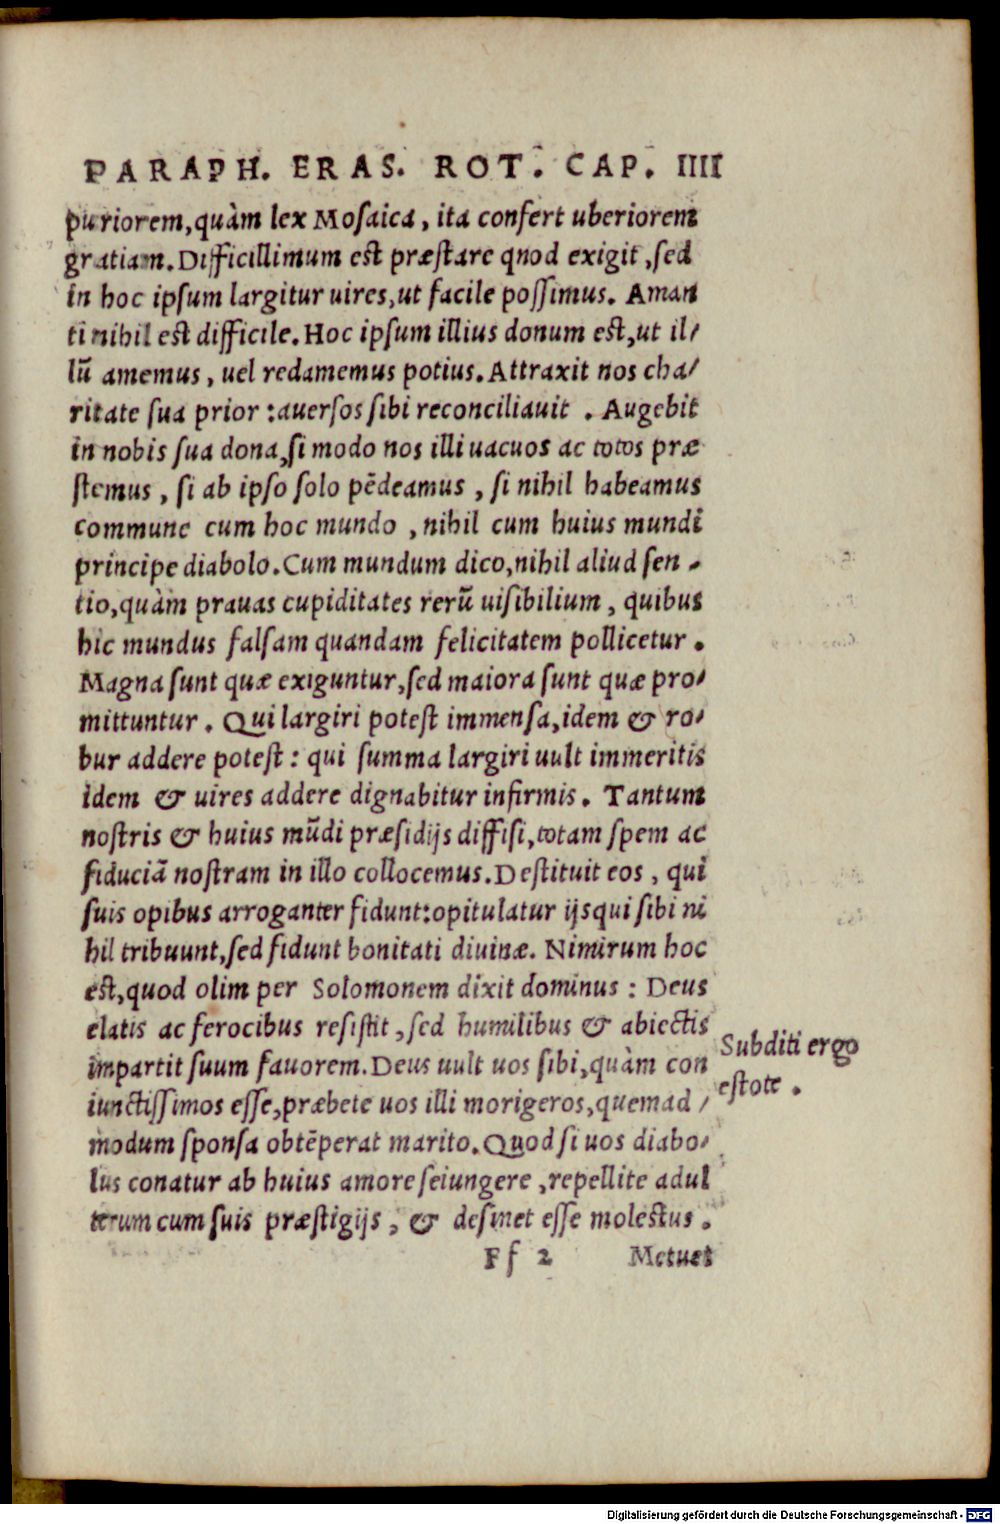 PARAPH. ERAS. ROT. CAP. IIII
puriorem, quàm lex Mosaica, ita confert uberiorem
gratiam. Difficillimum est præstare qnod exigit, sed
in hoc ipsum largitur uires, ut facile possimus. Aman
ti nihil est difficile. Hoc ipsum illius donum est, ut il/
lũ amemus, uel redamemus potius. Attraxit nos cha/
ritate sua prior : auersos sibi reconciliauit . Augebit
in nobis sua dona, si modo nos illi uacuos ac totos præ
stemus, si ab ipso solo pẽdeamus, si nihil habeamus
commune cum hoc mundo, nihil cum huius mundi
principe diabolo. Cum mundum dico, nihil aliud sen/
tio, quàm prauas cupiditates rerũ uisibilium, quibus
hic mundus falsam quandam felicitatem pollicetur.
Magna sunt quæ exiguntur, sed maiora sunt quæ pro/
mittuntur. Qui largiri potest immensa, idem & ro/
bur addere potest : qui summa largiri uult immeritis
idem & uires addere dignabitur infirmis. Tantum
nostris & huius mũdi præsidijs diffisi, totam spem ac
fiduciã nostram in illo collocemus. Destituit eos, qui
suis opibus arroganter fidunt: opitulatur ijs qui sibi ni
hil tribuunt, sed fidunt bonitati diuinæ. Nimirum hoc
est, quod olim per Solomonem dixit dominus : Deus
elatis ac ferocibus resistit, sed humilibus & abiectis
impartit suum fauorem. Deus uult uos sibi, quàm con
iunctissimos esse, præbete uos illi morigeros, quemad/
modum sponsa obtẽperat marito. Quod si uos diabo/
lus conatur ab huius amore seiungere, repellite adul
terum cum suis præstigijs, & desinet esse molestus.
Subditi ergo
estote.
Ff 2 Metuet
Digitalisierung gefördert durch die Deutsche Forschungsgemeinschaft - DFG